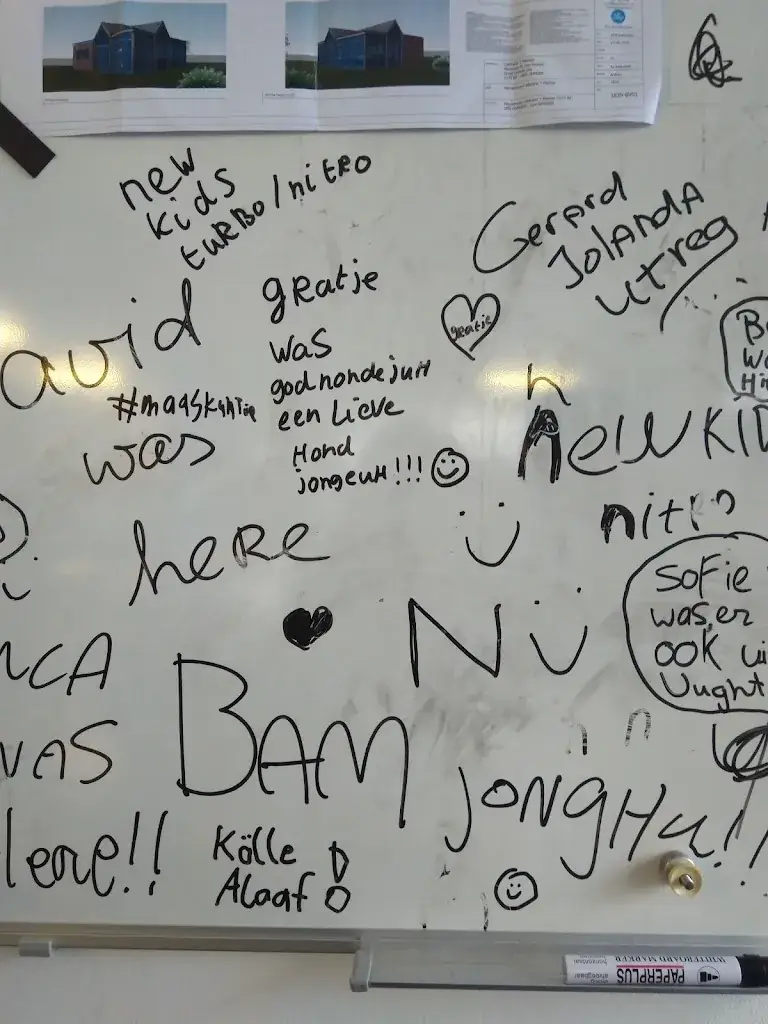 new
kids
tuRBO/nitRO
Gerard
JolAndA
utreg
avid
gRatje
was
godnondejuH
een Lieve
Hond
jongeuH!!!
gRatje
#maaskantje
was
heRe
h
neWKID
nitro
Sofie
was er
OOK
Vught
NCA
WAS
Here!!
BAM
Nü
JONGHu!!
Kölle
Alaaf!
PAPERPLUS
WHITEBOARD MARKER